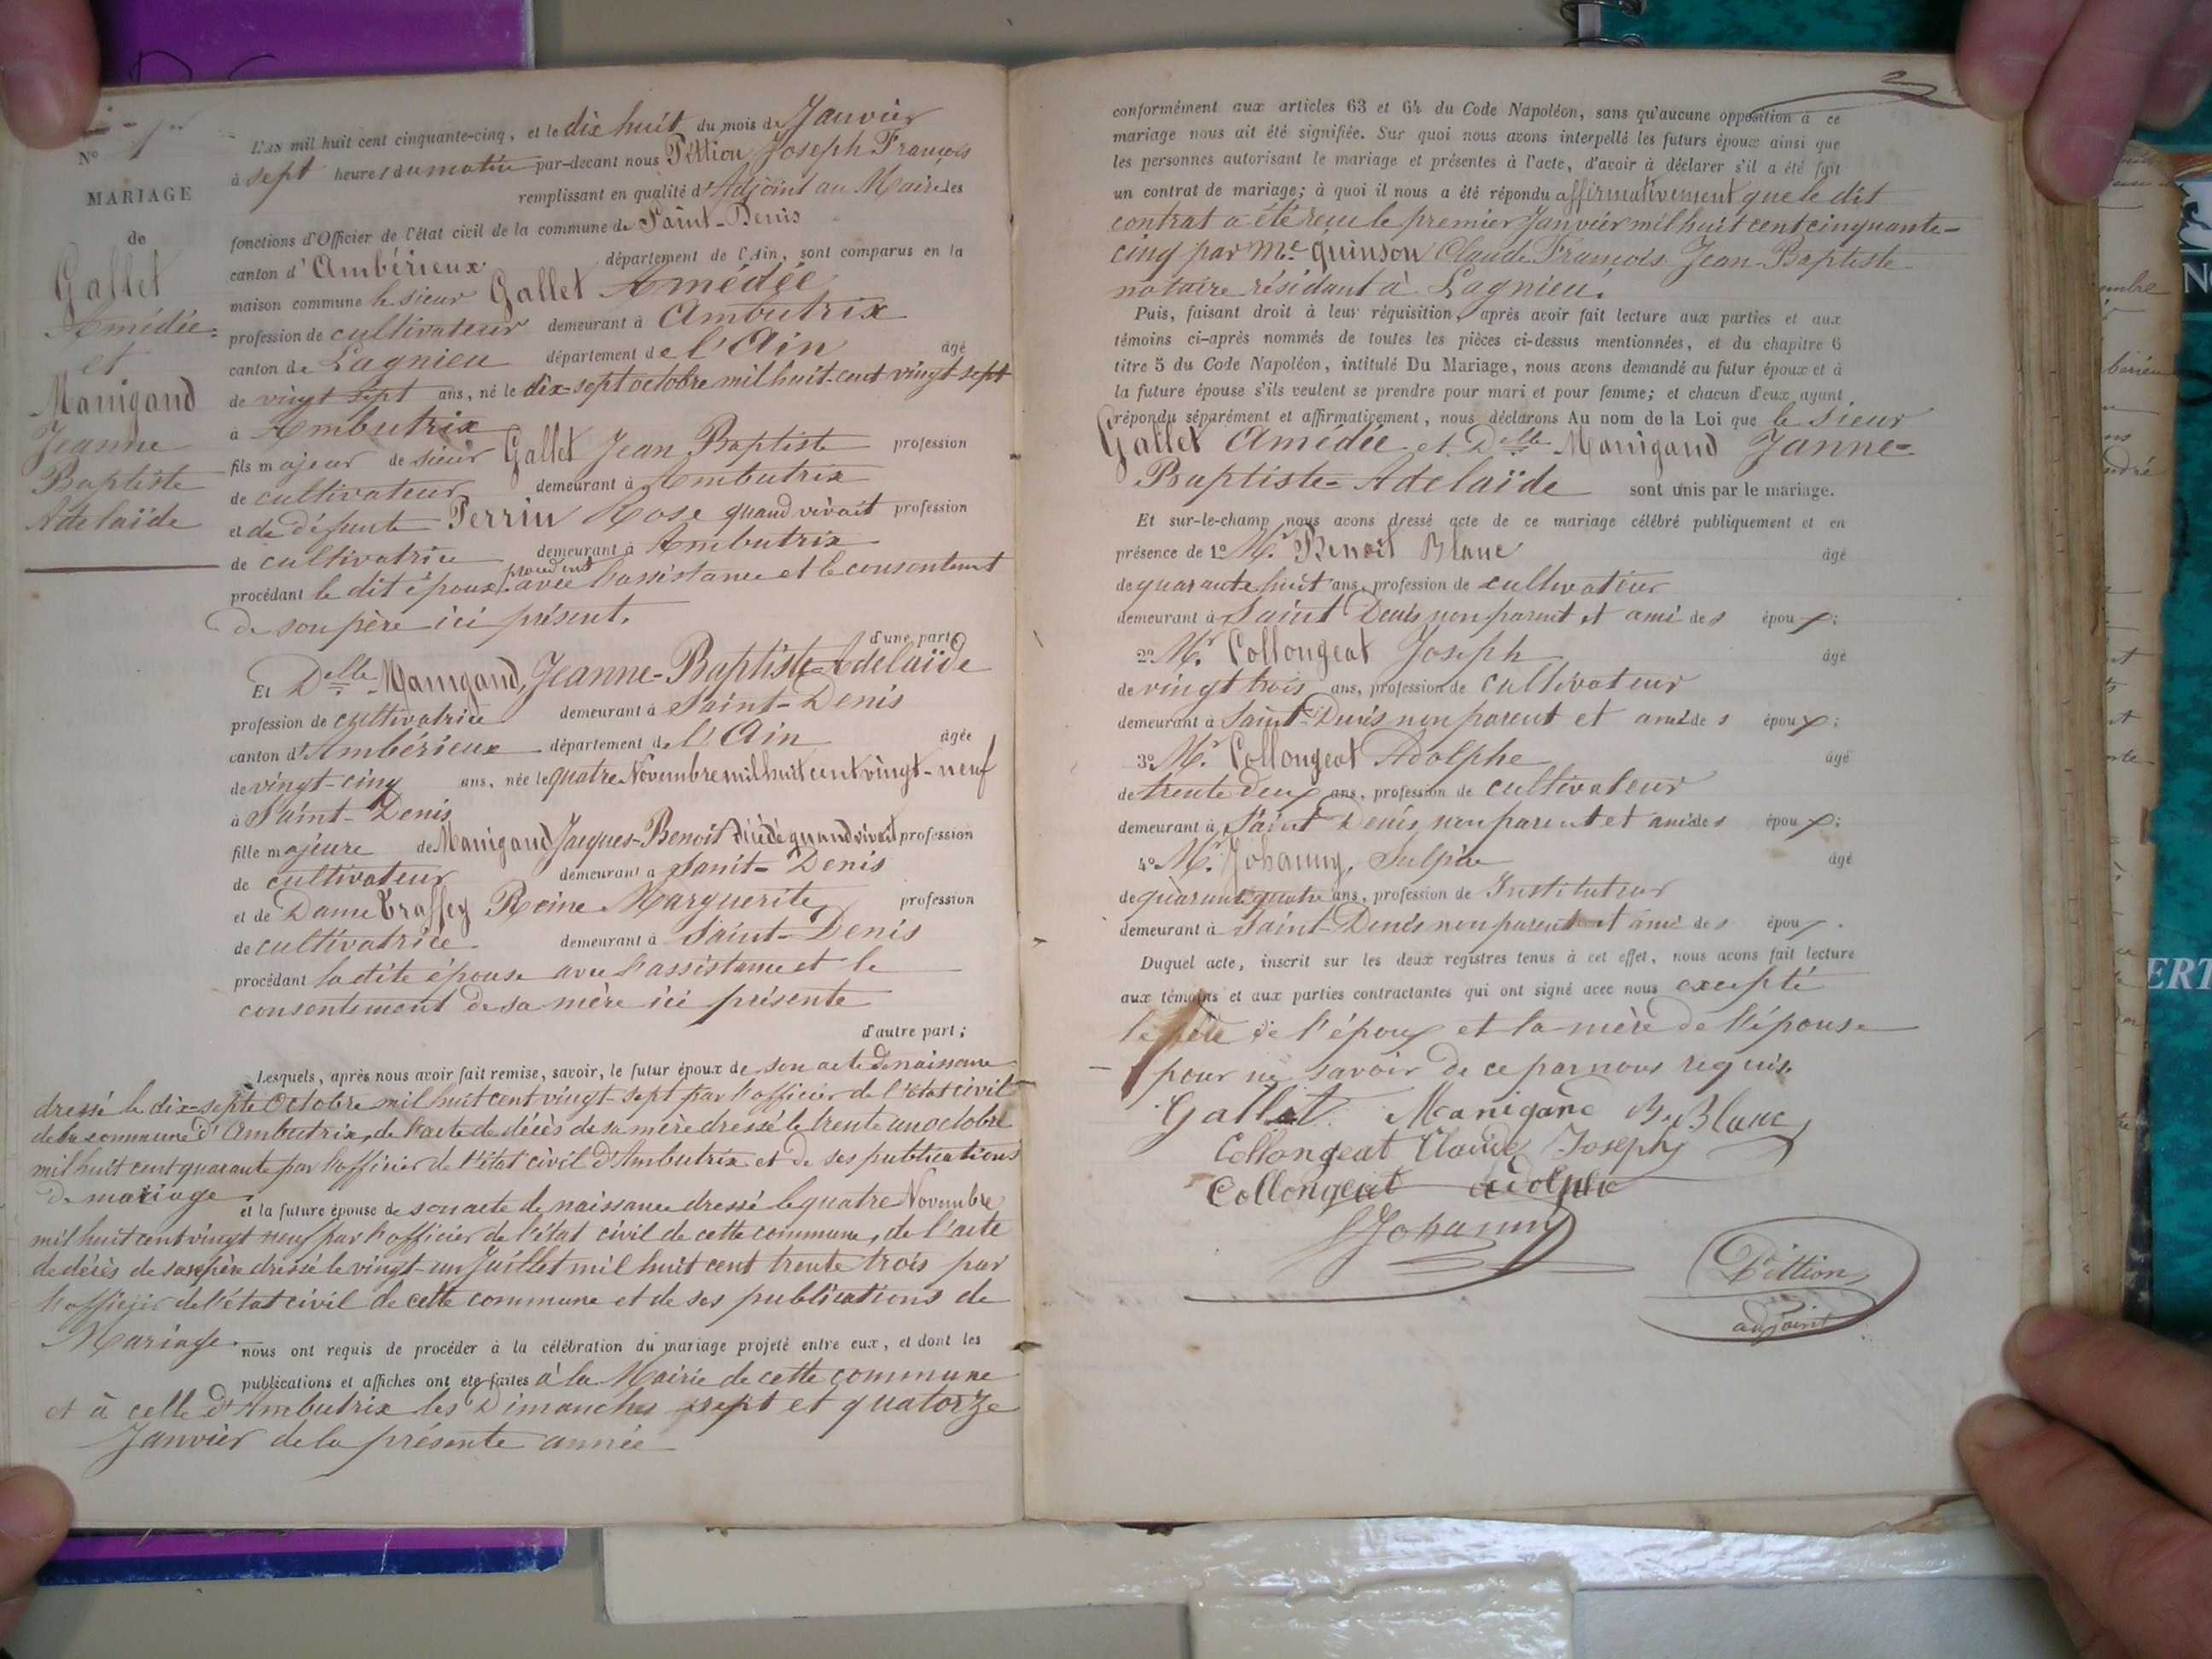 N° 1er
MARIAGE
de
Gallet
Amédée
et
Manigand
Jeanne
Baptiste
Adelaïde
L'an mil huit cent cinquante-cinq, et le dix huit du mois de Janvier
à sept heures du matin par-devant nous Pittion Joseph François
remplissant en qualité d'Adjoint au Maire les
fonctions d'Officier de l'état civil de la commune de Saint-Denis
canton d'Ambérieux département de l'Ain, sont comparus en la
maison commune le sieur Gallet Amédée
profession de cultivateur demeurant à Ambutrix
canton de Lagnieu département de l'Ain âgé
de vingt sept ans, né le dix-sept octobre mil huit-cent vingt sept
à Ambutrix
fils majeur de sieur Gallet Jean Baptiste profession
de cultivateur demeurant à Ambutrix
et de défunte Perrin Rose quand vivait profession
de cultivatrice demeurant à Ambutrix
procédant le dit époux procédant avec l'assistance et le consentement
de son père ici présent.
d'une part;
Et Delle Manigand, Jeanne-Baptiste Adelaïde
profession de cultivatrice demeurant à Saint-Denis
canton d'Ambérieux département de l'Ain âgée
de vingt-cinq ans, née le quatre Novembre mil huit cent vingt-neuf
à Saint-Denis
fille majeure de Manigand Jacques-Benoit décédé quand vivait profession
de cultivateur demeurant à Saint-Denis
et de Dame Traffey Reine Marguerite, profession
de cultivatrice demeurant à Saint-Denis
procédant la dite épouse avec l'assistance et le
consentement de sa mère ici présente
d'autre part;
Lesquels, après nous avoir fait remise, savoir, le futur époux de son acte de naissance
dressé le dix-septe Octobre mil huit cent vingt-sept par l'officier de l'état civil
de la commune d'Ambutrix, de l'acte de décès de sa mère dressé le trente un octobre
mil huit cent quarante par l'officier de l'état civil d'Ambutrix et de ses publications
de mariage
et la future épouse de son acte de naissance dressé le quatre Novembre
mil huit cent vingt neuf par l'officier de l'état civil de cette commune, de l'acte
de décès de son père dressé le vingt-un Juillet mil huit cent trente trois par
l'officier de l'état civil de cette commune et de ses publications de
Mariage nous ont requis de procéder à la célébration du mariage projeté entre eux, et dont les
publications et affiches ont été faites à la Mairie de cette commune
et à celle d'Ambutrix les Dimanches sept et quatorze
Janvier de la présente année
2
conformément aux articles 63 et 64 du Code Napoléon, sans qu'aucune opposition à ce
mariage nous ait été signifiée. Sur quoi nous avons interpellé les futurs époux ainsi que
les personnes autorisant le mariage et présentes à l'acte, d'avoir à déclarer s'il a été fait
un contrat de mariage; à quoi il nous a été répondu affirmativement que le dit
contrat a été reçu le premier Janvier mil huit cent cinquante-
cinq par Me. Quinson Claude François Jean Baptiste
notaire résidant à Lagnieu.
Puis, faisant droit à leur réquisition, après avoir fait lecture aux parties et aux
témoins ci-après nommés de toutes les pièces ci-dessus mentionnées, et du chapitre 6
titre 5 du Code Napoléon, intitulé Du Mariage, nous avons demandé au futur époux et à
la future épouse s'ils veulent se prendre pour mari et pour femme; et chacun d'eux ayant
répondu séparément et affirmativement, nous déclarons Au nom de la Loi que le Sieur
Gallet Amédée et Delle Manigand Janne-
Baptiste-Adelaïde sont unis par le mariage.
Et sur-le-champ nous avons dressé acte de ce mariage célébré publiquement et en
présence de 1° Mr. Benoit Blanc âgé
de quarante huit ans, profession de cultivateur
demeurant à Saint Denis non parent et ami des époux;
2° Mr. Collongeat Joseph âgé
de vingt trois ans, profession de cultivateur
demeurant à Saint-Denis non parent et ami des époux;
3° Mr. Collongeat Adolphe âgé
de trente deux ans, profession de cultivateur
demeurant à Saint Denis non parent et ami des époux;
4° Mr. Johanny, Sulpice âgé
de quarante quatre ans, profession de Instituteur
demeurant à Saint-Denis non parent et ami des époux.
Duquel acte, inscrit sur les deux registres tenus à cet effet, nous avons fait lecture
aux témoins et aux parties contractantes qui ont signé avec nous excepté
le père de l'époux et la mère de l'épouse
pour ne savoir de ce par nous requis.
Gallet Manigand B. Blanc
Collongeat Claude Joseph
Collongeat adolphe
Johanny
Pittion
adjoint